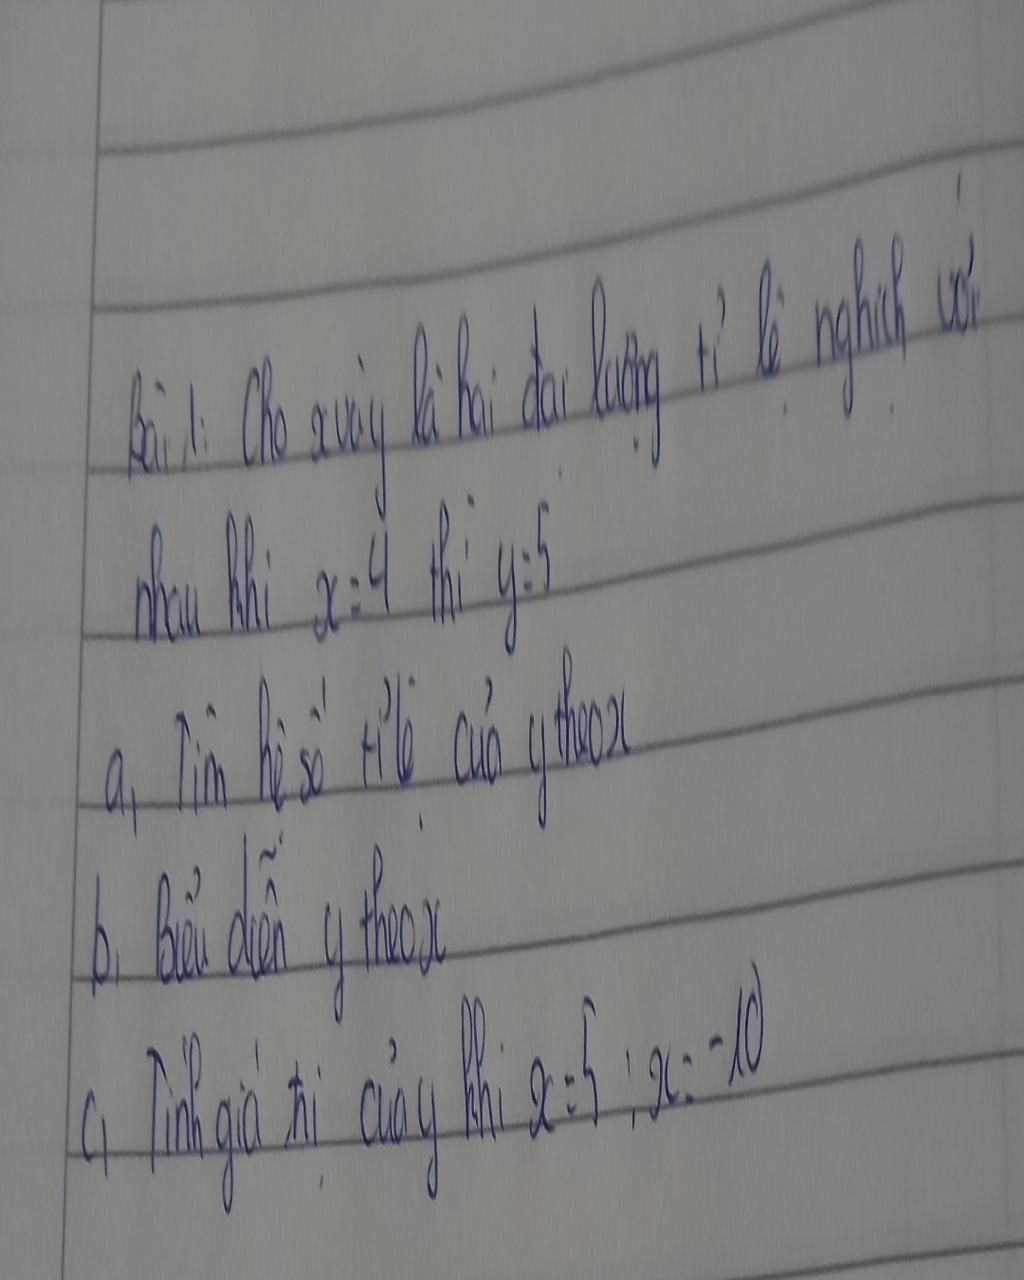 Bài 1: Cho x và y là hai đại lượng tỉ lệ nghịch với
nhau khi x=4 thì y=5
a, Tìm hệ số tỉ lệ của y theo x
b, Biểu diễn y theo x
c, Tính giá trị của y khi x=5; x=-10